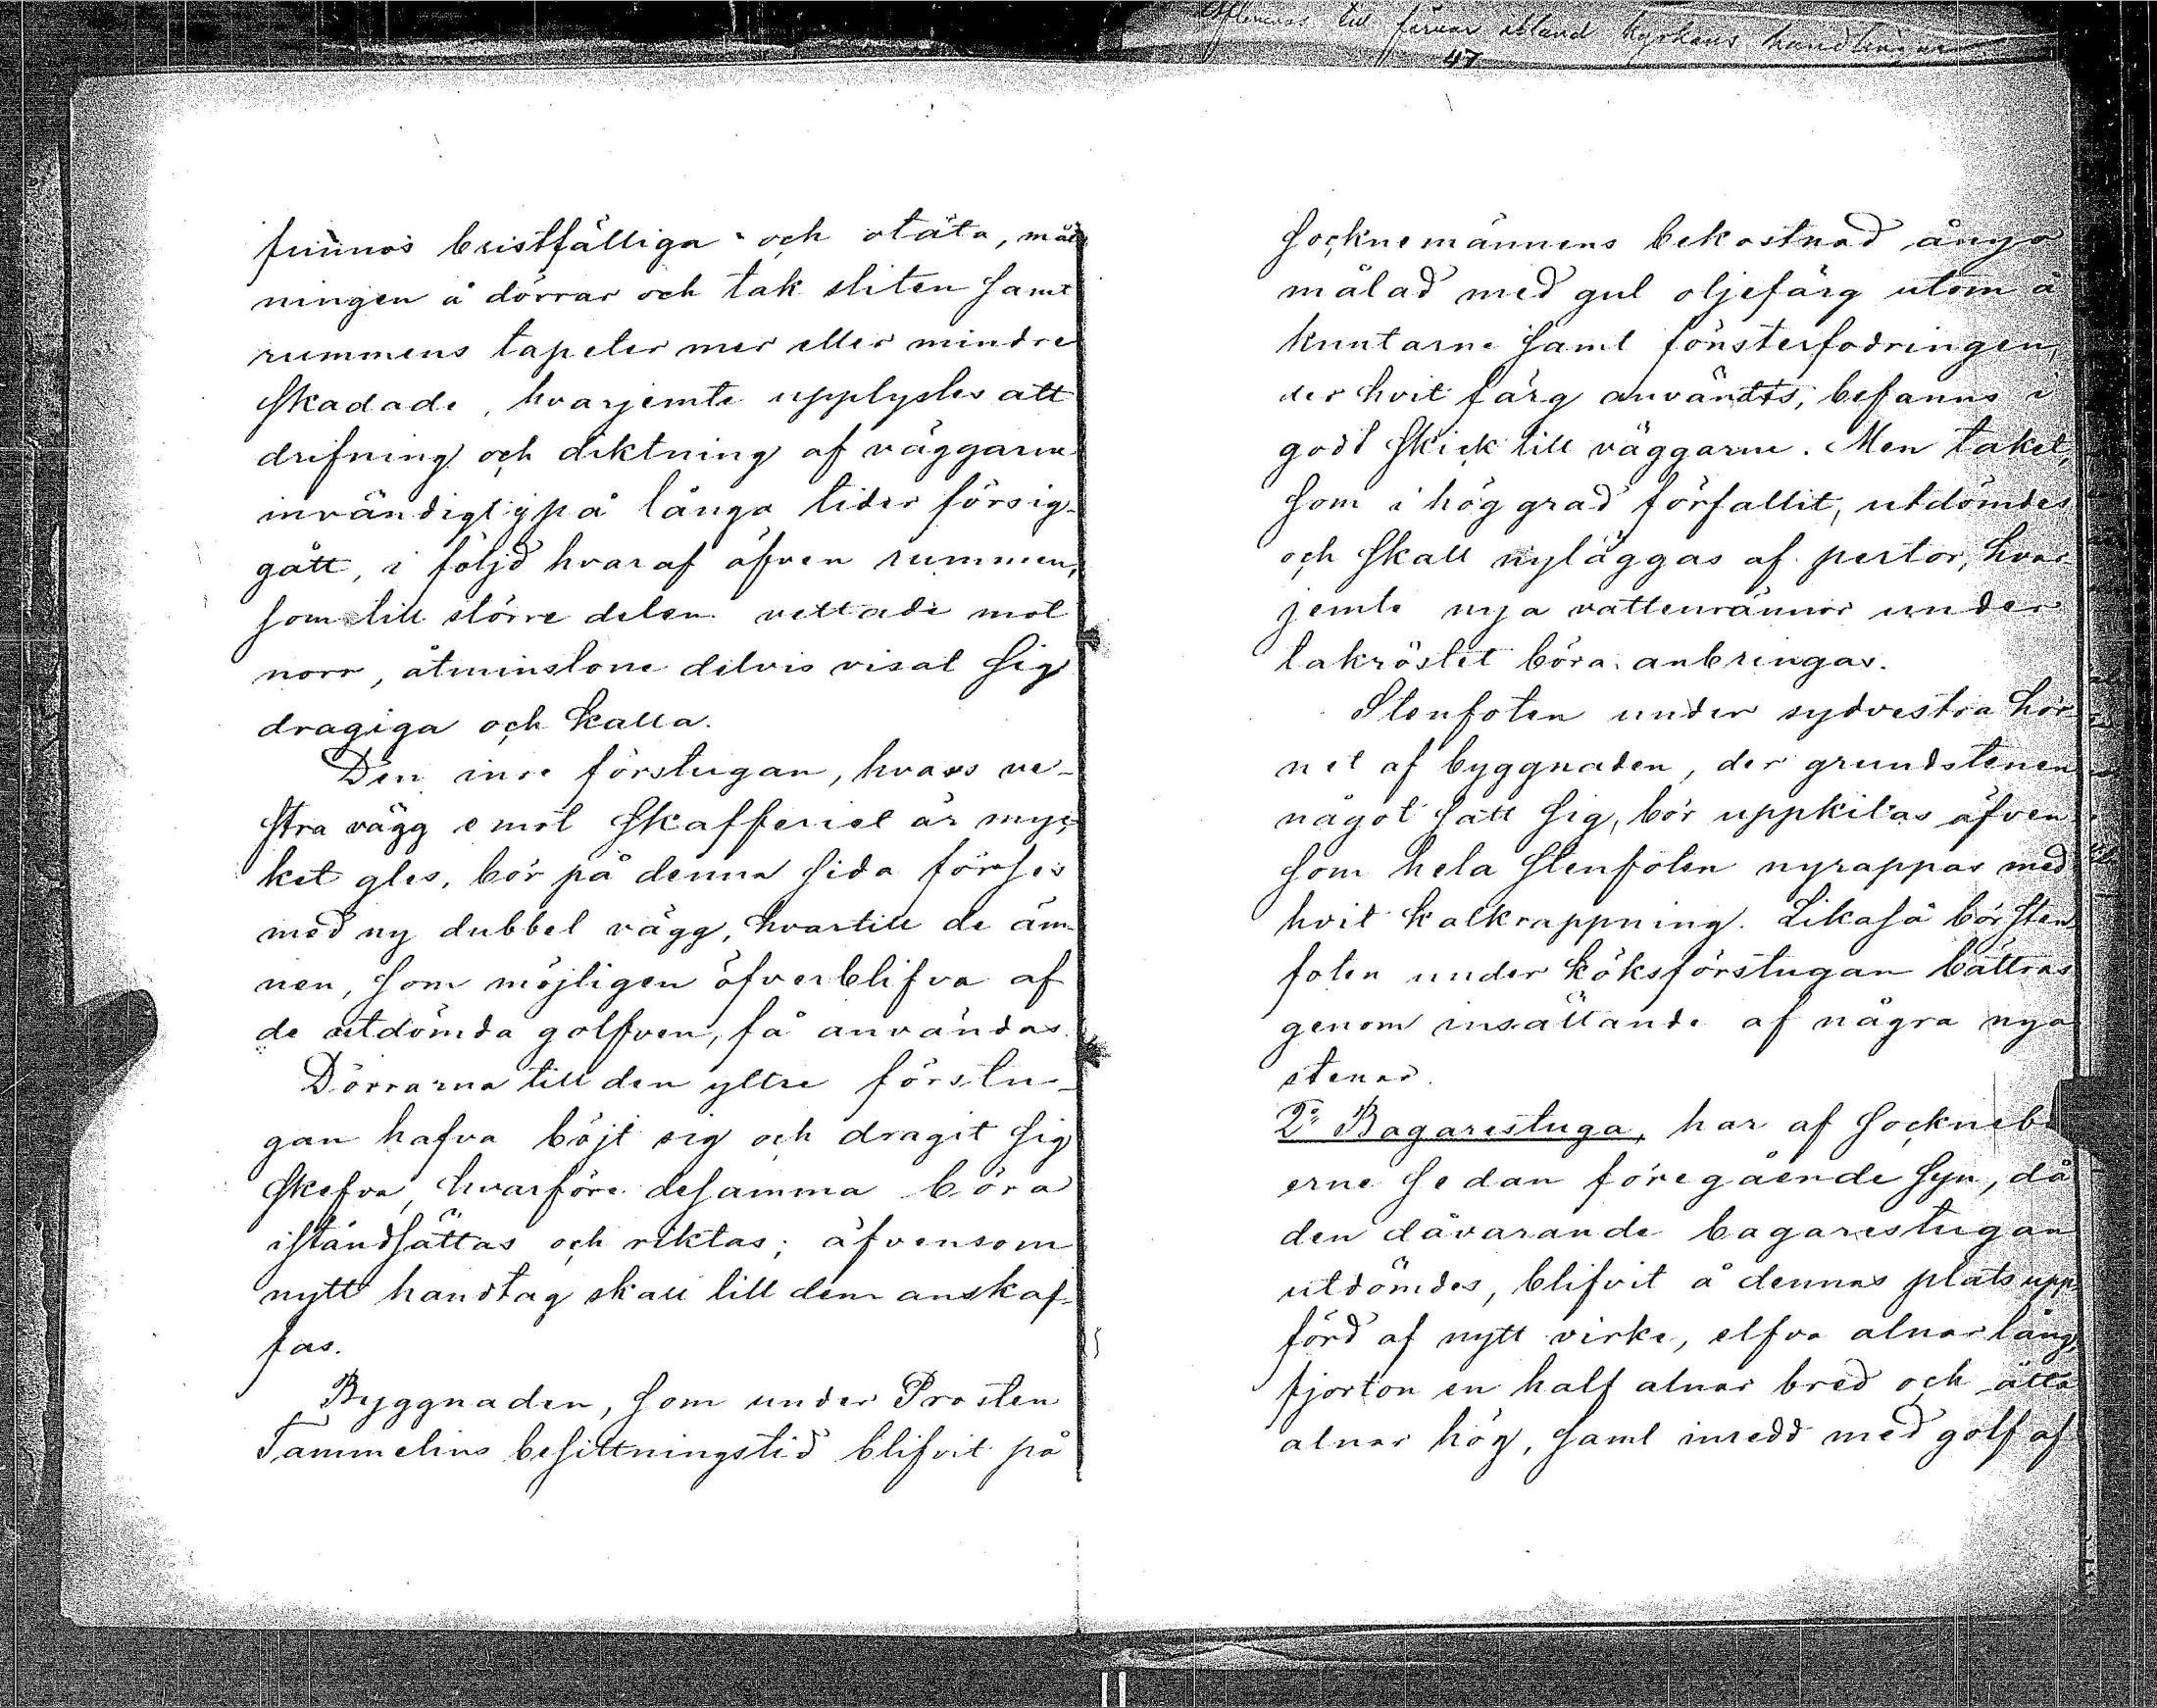 till förvar ibland kyrkans handlingar
47
funnos bristfälliga och otäta, mål-
ningen å dörrar och tak sliten samt
rummens tapeter mer eller mindre
skadade, hvarjemte upplystes att
drifning och diktning af väggarne
invändigt ej på långa tider försig-
gått, i följd hvaraf äfven rummen,
som till större delen vettade mot
norr, åtminstone delvis visat sig
dragiga och kalla.
Den inre förstugan, hvars ve-
stra vägg emot skafferiet är myc-
ket gles, bör på denna sida förses
med ny dubbel vägg, hvartill de äm-
nen, som möjligen öfverblifva af
de utdömda golfven, få användas.
Dörrarna till den yttre förstu-
gan hafva böjt sig och dragit sig
skefva, hvarföre desamma böra
iståndsättas och riktas; äfvensom
nytt handtag skall till dem anskaf-
fas.
Byggnaden, som under Prosten
Tammelins besittningstid blifvit på
socknemännens bekostnad ånyo
målad med gul oljefärg utom å
knutarne samt fönsterfodringen,
der hvit färg användts, befanns i
godt skick till väggarne. Men taket,
som i hög grad förfallit, utdömdes
och skall nyläggas af pertor, hvar-
jemte nya vattenrännor under
takröstet böra anbringas.
Stenfoten under sydvestra hör-
net af byggnaden, der grundstenen
något satt sig, bör uppkilas äfven
som hela stenfoten nyrappas med
hvit kalkrappning. Likaså bör sten-
foten under köksförstugan bättras
genom insättande af några nya
stenar.
2:o Bagarestuga, har af
erne sedan föregående syn, då
den dåvarande bagarestugan
utdömdes, blifvit å dennas plats upp-
förd af nytt virke, elfva alnar lång,
fjorton en half alnar bred och åtta
alnar hög, samt inredd med golf af